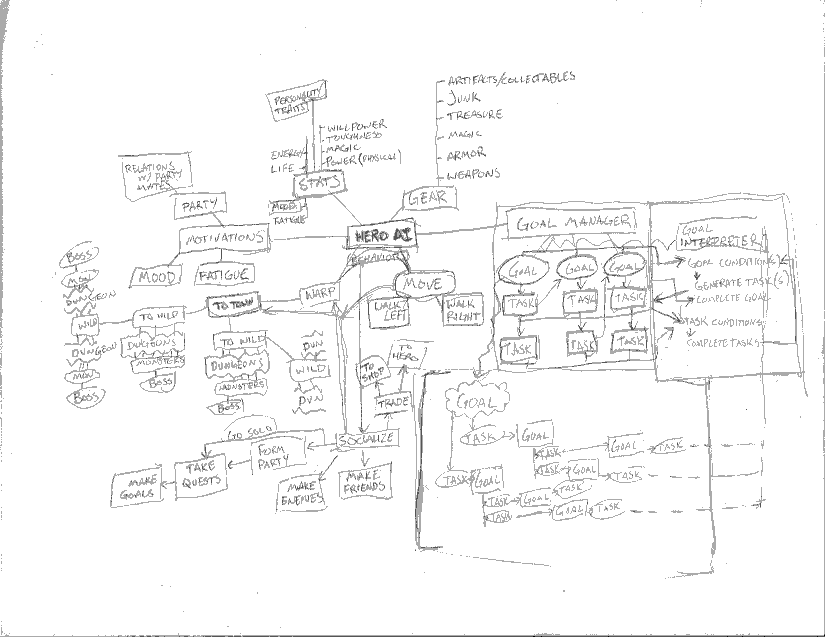 PERSONALITY
TRAITS
WILLPOWER
TOUGHNESS
MAGIC
POWER (PHYSICAL)
ENERGY
LIFE
STATS
MOOD
FATIGUE
ARTIFACTS/COLLECTABLES
JUNK
TREASURE
MAGIC
ARMOR
WEAPONS
GEAR
RELATIONS
W/ PARTY
MATES
PARTY
MOTIVATIONS
MOOD
FATIGUE
HERO AI
BEHAVIORS
WARP
MOVE
WALK
LEFT
WALK
RIGHT
BOSS
MON
DUNGEON
WILD
DUNGEON
MON
BOSS
TO WILD
DUNGEONS
MONSTERS
BOSS
TO TOWN
TO WILD
DUNGEONS
MONSTERS
BOSS
DUN
WILD
DUN
TO
SHOP
TO
HERO
TRADE
SOCIALIZE
GO SOLO
FORM
PARTY
TAKE
QUESTS
MAKE
GOALS
MAKE
ENEMIES
MAKE
FRIENDS
GOAL MANAGER
GOAL GOAL GOAL
TASK TASK TASK
TASK TASK TASK
GOAL
INTERPRETER
GOAL CONDITION(S)
GENERATE TASK(S)
COMPLETE GOAL
TASK CONDITIONS
COMPLETE TASKS
GOAL
TASK GOAL
TASK GOAL TASK
TASK GOAL TASK
TASK GOAL
TASK GOAL TASK
TASK GOAL TASK